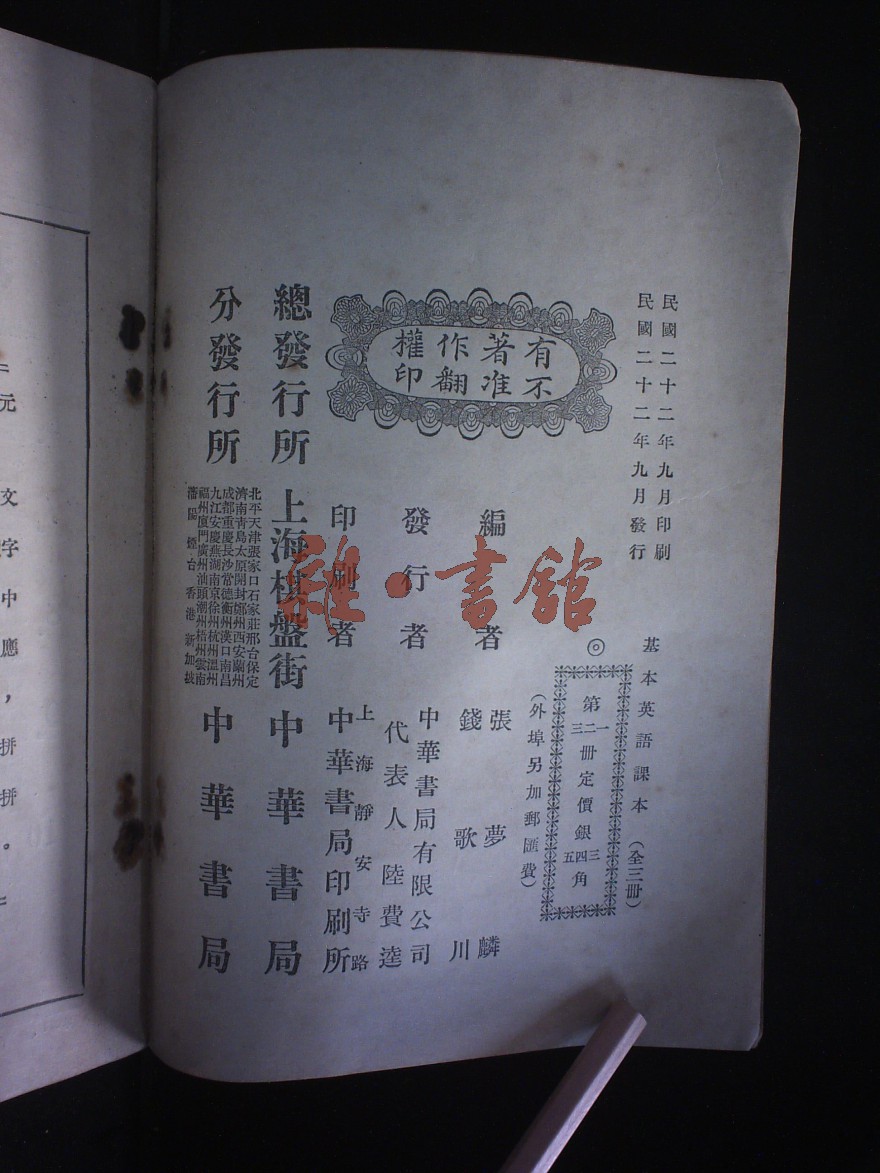 民國二十二年九月印刷
民國二十二年九月發行
基本英語課本(全三冊)
◎
第一二三冊定價銀三四五角
(外埠另加郵匯費)
有著作權
不准翻印
編者
張夢麟
錢歌川
發行者
中華書局有限公司
代表人 陸費逵
印刷者
上海靜安寺路
中華書局印刷所
總發行所
上海棋盤街
中華書局
分發行所
北平天津張家口石家莊邢台保定
濟南青島太原開封鄭州西安蘭州
成都重慶長沙常德衡州漢口南昌
九江安慶蕪湖南京徐州杭州溫州
福州廈門廣州汕頭潮州梧州雲南
瀋陽 煙台 香港 新加坡
中華書局
雜·書館
元
文
字
中
應
,
拼
拼
。